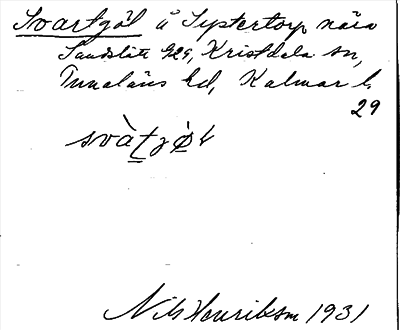 Svartgöl å Systertorp nära
Sandslätt 4/29, Kristdala sn,
Tunaläns hd, Kalmar l.
29
svàtjø̀l
Nils Henriksson 1931